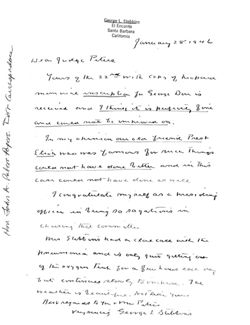 George L. Stebbins
El Encanto
Santa Barbara
California
January 28 1942
Dear Judge Peters
Yours of the 22nd with copy of proposed
memorial inscription for George Dorr is
received and I think it is perfectly fine
and could not be improved on.
In my opinion our old friend Prest
Eliot who was famous for such things
could not have done better and in this
case could not have done as well.
I congratulate myself as a presiding
officer in being so sagacious in
choosing the committee.
Mrs Stebbins had a close call with the
pneumonia and is only just getting out
of the oxygen tent for a few hours each day
but continues slowly to improve. The
weather is beautiful.
Best regards to you & Mrs Peters
Very sincerely George L Stebbins
Hon. John A. Peters
Dorr Correspondence